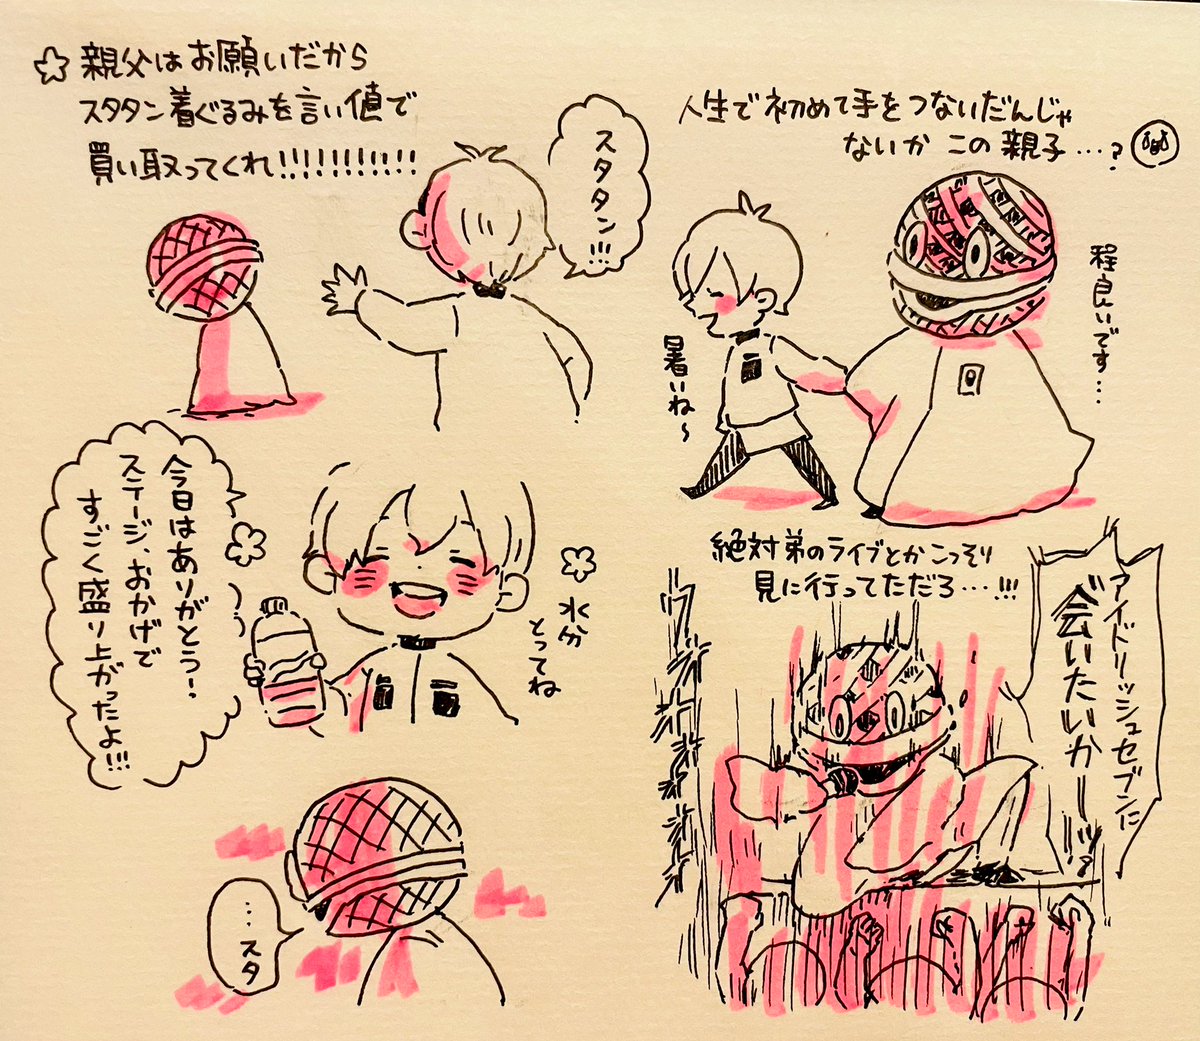 親父はお願いだから
スタタン着ぐるみを言い値で
買い取ってくれ!!!!!!!!!!
スタタン!!!
人生で初めて手をつないだんじゃ
ないか この親子…?
暑いね〜
程良いです…
今日はありがとう!
ステージ、おかげで
すごく盛り上がったよ!!!
水分
とってね
…スタ
絶対弟のライブとかこっそり
見に行ってただろ…!!!
アイドリッシュセブンに
会いたいかーーッ?